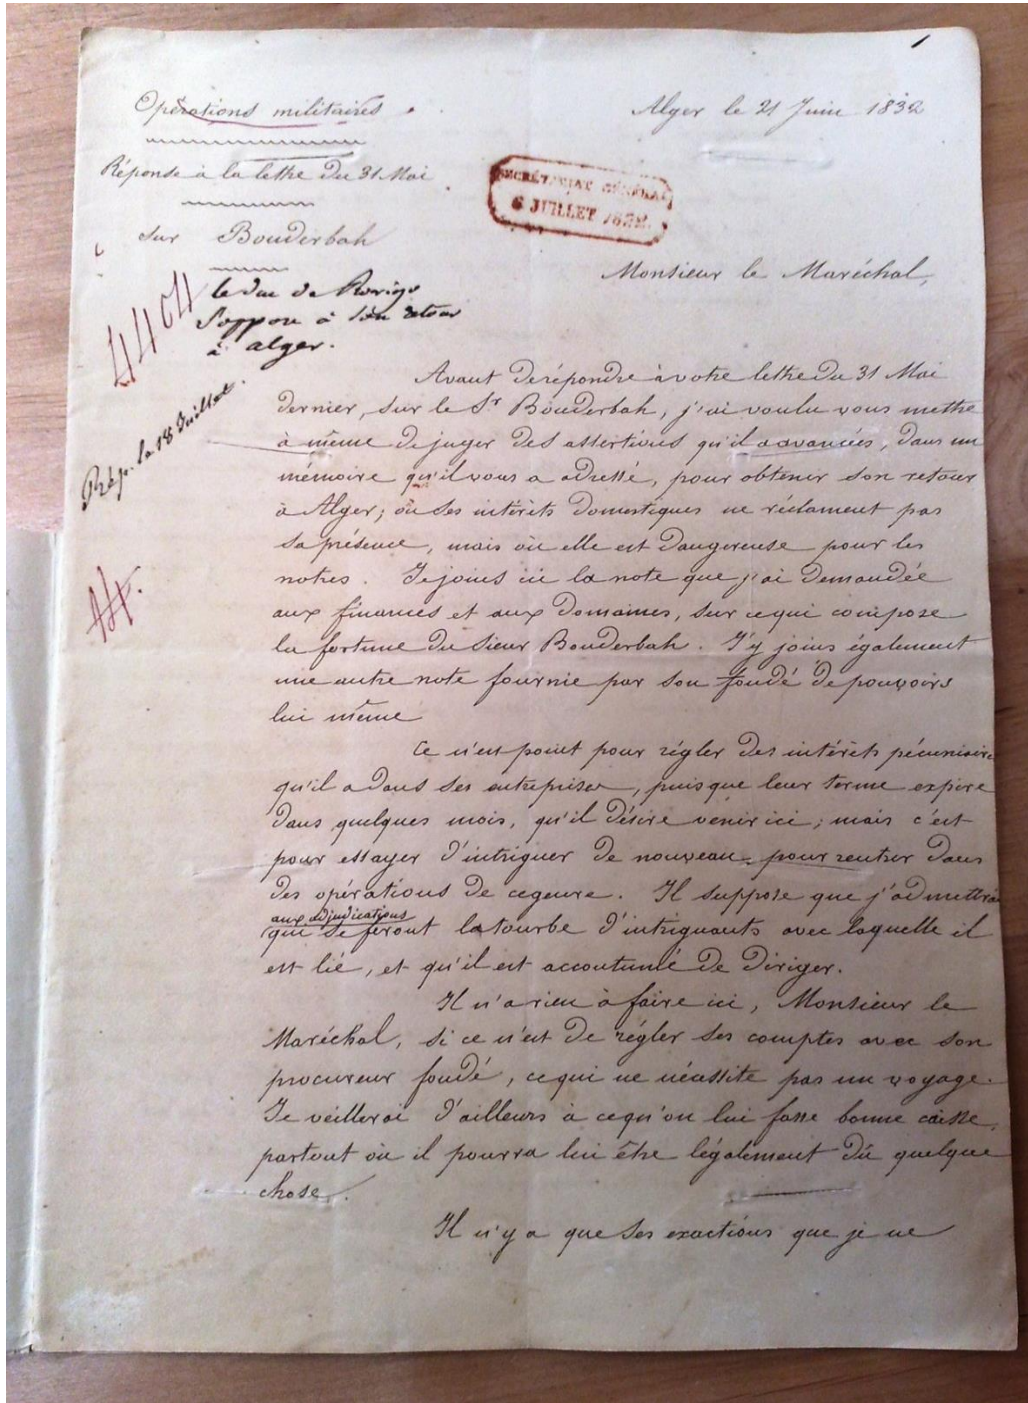 1
Opérations militaires
Alger le 21 Juin 1832
Réponse à la lettre du 31 Mai
SECRÉTARIAT GÉNÉRAL
6 JUILLET 1832.
sur Bouderbah
Monsieur le Maréchal,
le duc de Rovigo
s'oppose à son retour
à alger.
4404
Rép. le 18 Juillet.
Avant de répondre à votre lettre du 31 Mai
dernier, sur le Sr Bouderbah, j'ai voulu vous mettre
à même de juger des assertions qu'il a avancées, dans un
mémoire qu'il vous a adressé, pour obtenir son retour
à Alger; où ses intérêts domestiques ne réclament pas
sa présence, mais où elle est dangereuse pour les
notres. Je joins ici la note que j'ai demandée
aux finances et aux domaines, sur ce qui compose
la fortune du sieur Bouderbah. J'y joins également
une autre note fournie par son fondé de pouvoirs
lui même
Ce n'est point pour régler des intérêts pécuniaire
qu'il a dans ses entreprises, puisque leur terme expire
dans quelques mois, qu'il désire venir ici; mais c'est
pour essayer d'intriguer de nouveau pour rentrer dans
des opérations de ce genre. Il suppose que j'admettrai
aux adjudications
qui se feront la tourbe d'intriguants avec laquelle il
est lié, et qu'il est accoutumé de diriger.
Il n'a rien à faire ici, Monsieur le
Maréchal, si ce n'est de régler ses comptes avec son
procureur fondé, ce qui ne nécessite pas un voyage.
Je veillerai d'ailleurs à ce qu'on lui fasse bonne caisse,
partout où il pourra lui être légalement dû quelque
chose.
Il n'y a que ses exactions que je ne